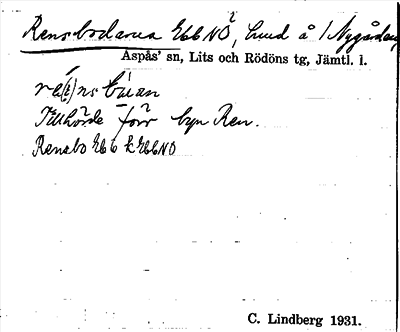 Rensbodarna Ebb NO, hund å / Nygården,
Aspås' sn, Lits och Rödöns tg, Jämtl. l.
Tillhörde förr byn Ren.
Rensbo Ebb k Ebb NO
C. Lindberg 1931.